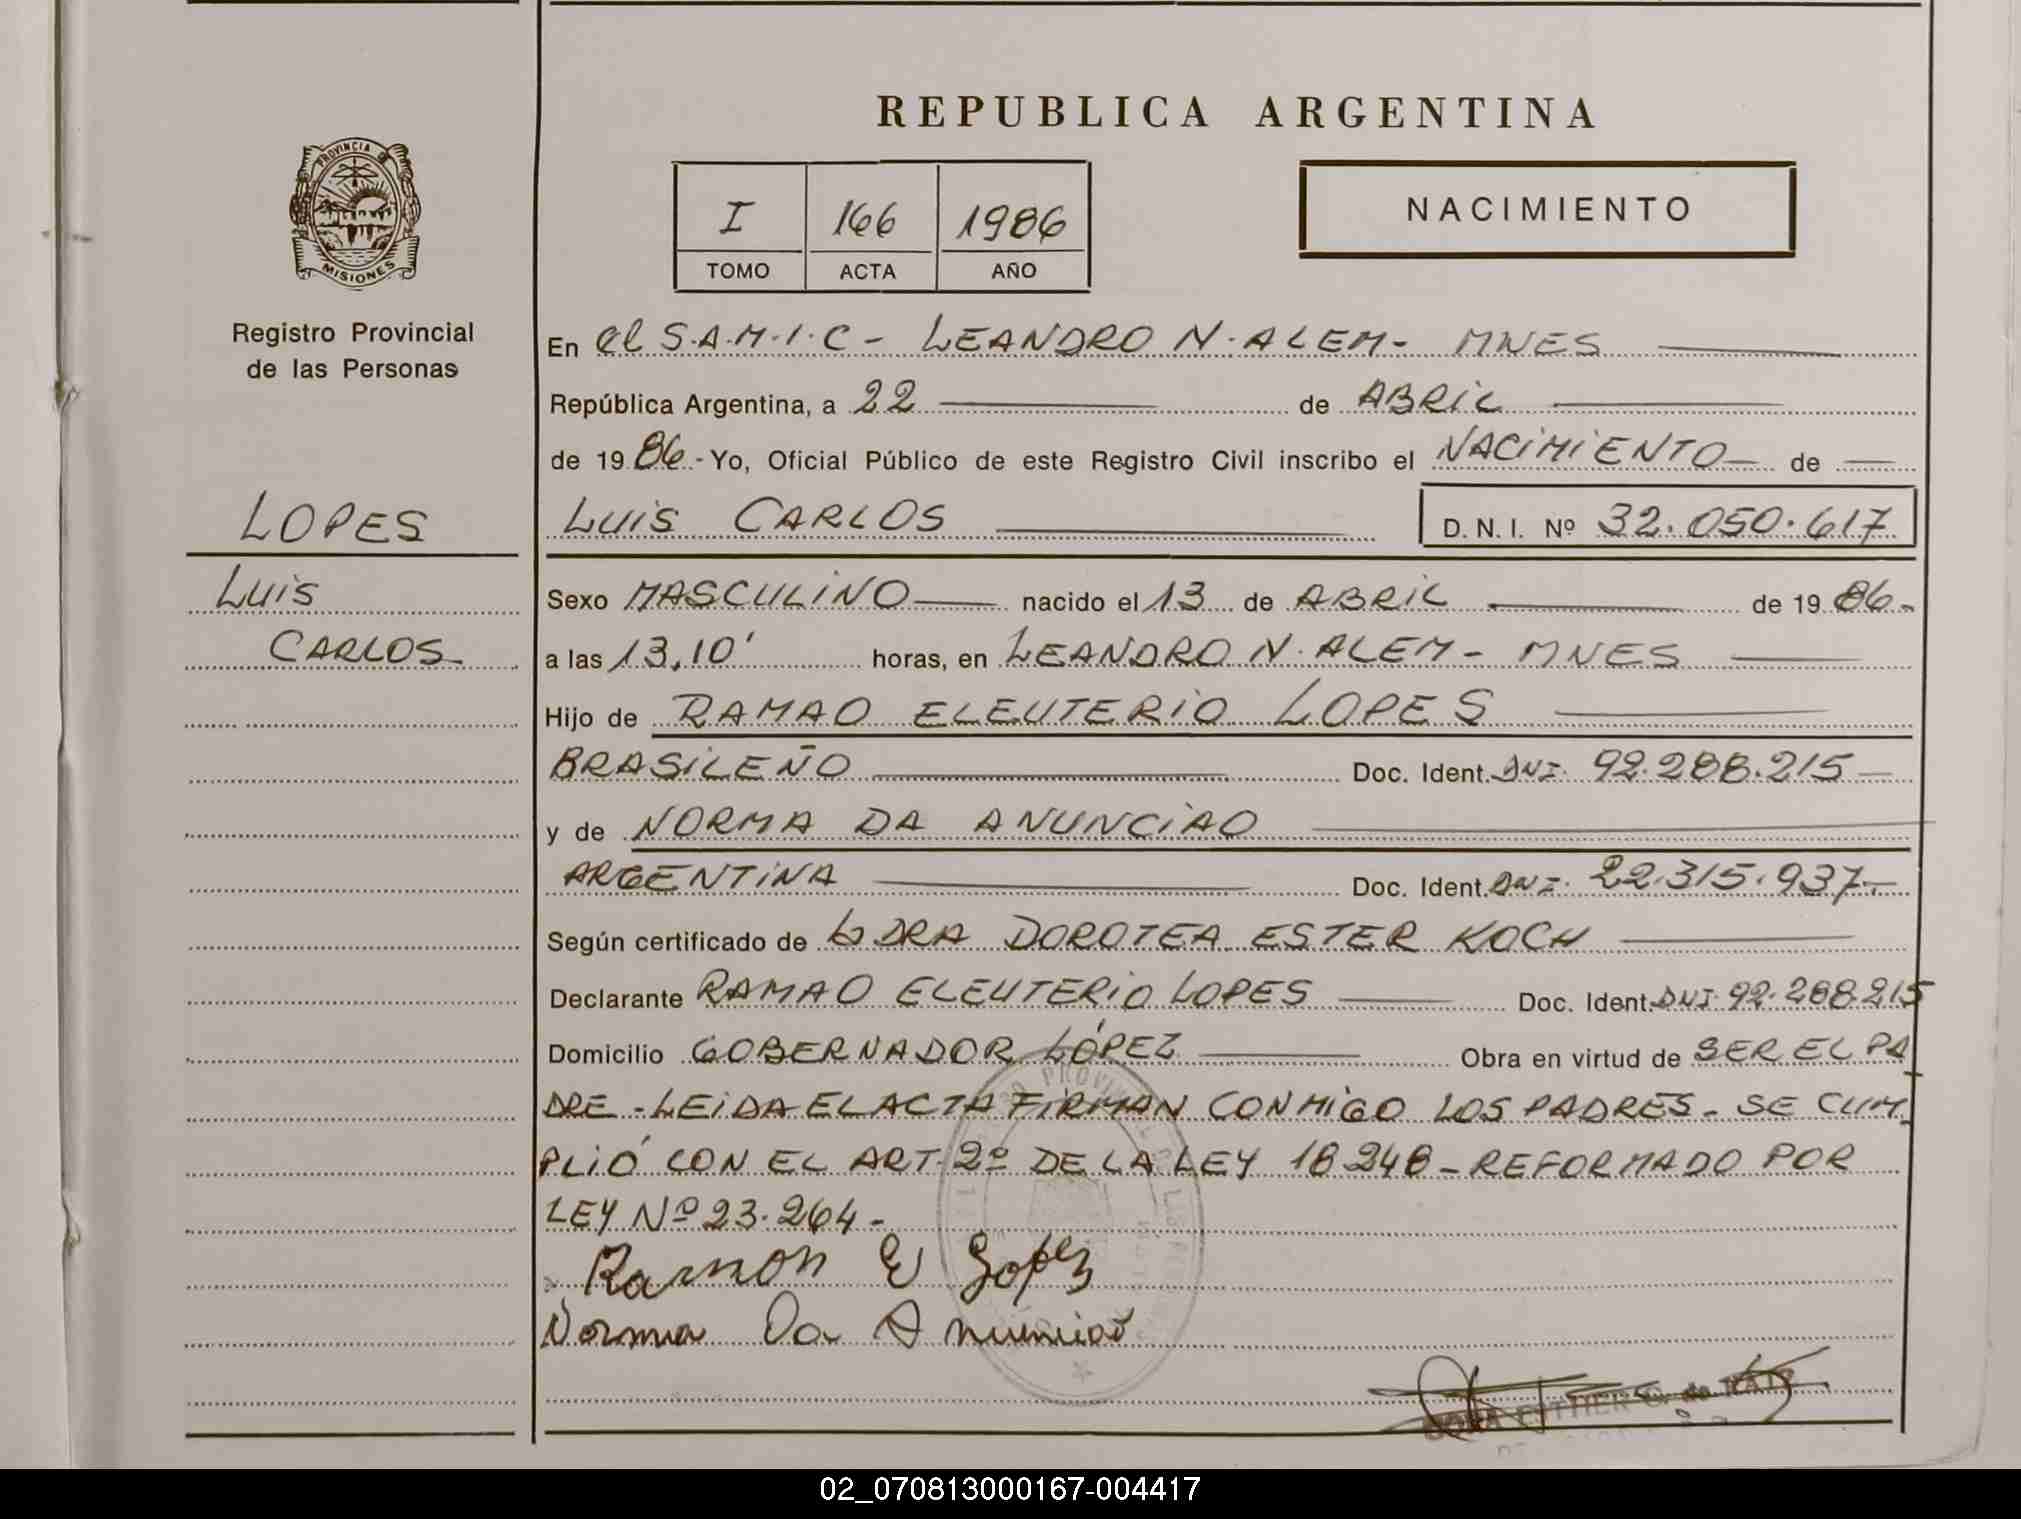 REPUBLICA ARGENTINA
PROVINCIA DE
MISIONES
Registro Provincial
de las Personas
I 166 1986
TOMO ACTA AÑO
NACIMIENTO
En el S.A.M.I.C - LEANDRO N. ALEM - MNES
República Argentina, a 22 de ABRIL
de 1986.- Yo, Oficial Público de este Registro Civil inscribo el NACIMIENTO de
LOPES
LUIS CARLOS D. N. I. Nº 32.050.617
LUIS
Sexo MASCULINO nacido el 13 de ABRIL de 1986.-
CARLOS
a las 13,10' horas, en LEANDRO N. ALEM - MNES
Hijo de RAMAO ELEUTERIO LOPES
BRASILEÑO Doc. Ident. DNI. 92.288.215
y de NORMA DA ANUNCIAO
ARGENTINA Doc. Ident. DNI. 22.315.937.-
Según certificado de DRA DOROTEA ESTER KOCH
Declarante RAMAO ELEUTERIO LOPES Doc. Ident. DNI. 92.288.215
Domicilio GOBERNADOR LÓPEZ Obra en virtud de SER EL PA
DRE - LEIDA EL ACTA FIRMAN CONMIGO LOS PADRES - SE CUM
PLIÓ CON EL ART. 2º DE LA LEY 18248 - REFORMADO POR
LEY Nº 23.264 -
Ramon E Lopez
Norma Da Anunciaõ
02_070813000167-004417